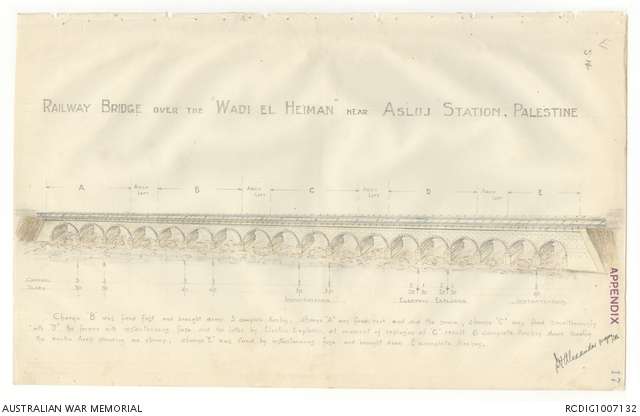 RAILWAY BRIDGE OVER THE "WADI EL HEIMAN" NEAR ASLUJ STATION, PALESTINE
A ARCH LEFT B ARCH LEFT C ARCH LEFT D ARCH LEFT E
CHARGE
SLABS
INSTANTANEOUS ELECTRIC EXPLODER INSTANTANEOUS
Charge "B" was fired first and brought down 3 complete Arches, charge "A" was fired next and did the same, charge "C" was fired simultaneously
with "D" the former with instantaneous fuze and the latter by Electric Exploder, at moment of explosion of "C" result 6 complete Arches down leaving
the centre Arch standing as shown; charge "E" was fired by instantaneous fuze and brought down 2 complete Arches.
APPENDIX
17
AUSTRALIAN WAR MEMORIAL
RCDIG1007132